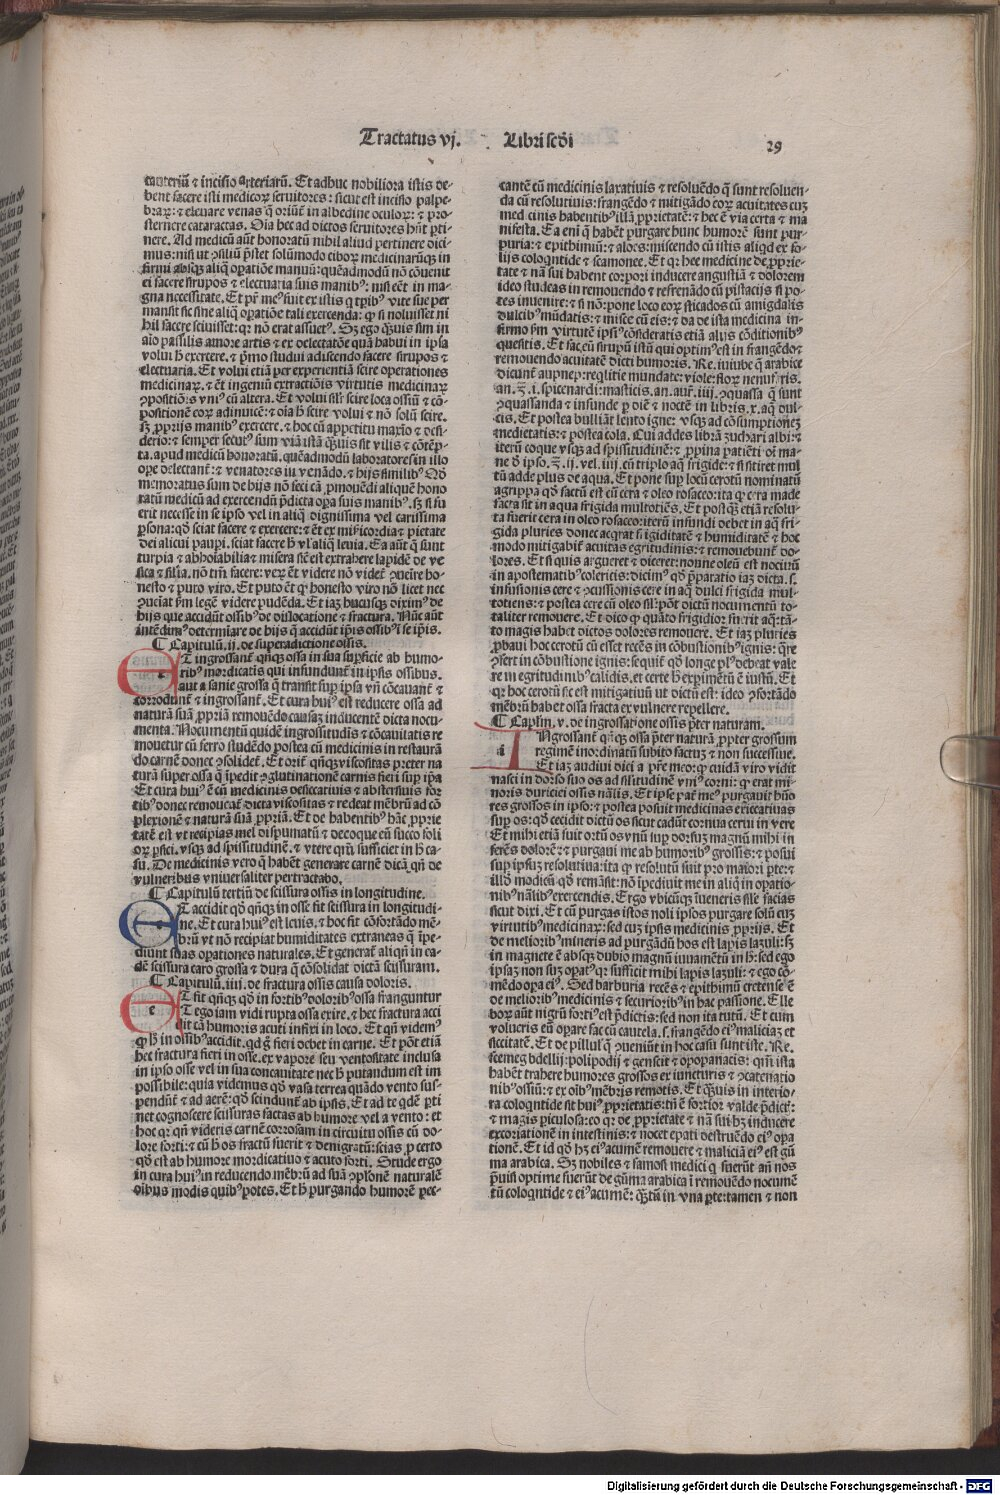 Tractatus vj. Libri scďi 29
cauteriũ ⁊ incisio arteriarũ. Et adhuc nobiliora istis de-
bent facere isti medicoꝝ seruitores: sicut est incisio palpe-
braꝝ: ⁊ eleuare venas q̃ oriũt in albedine oculoꝝ: ⁊ pro-
sternere cataractas. Oia hec ad dictos seruitores hñt ꝑti-
nere. Ad medicũ aũt honoratũ nihil aliud pertinere dici-
mus: nisi ut ↄsiliũ p̃stet solũmodo ciboꝝ medicinarũqꝫ in
firmi absqꝫ aliq̃ oꝑatiõe manuũ: quẽadmodũ nõ cõuenit
ei facere sirupos ⁊ electuaria suis manibꝰ: nisi eẽt in ma-
gna necessitate. Et pr̃ meꝰ fuit ex istis q tꝑibꝰ vite sue per
mansit sic sine aliq̃ oꝑatiõe tali exercenda: ꝙ si noluisset ni
hil facere sciuisset: qꝛ nõ erat assuetꝰ. Sꝫ ego q̃uis sim in
aĩo passilis amore artis ⁊ ex delectatõe quã habui in ipsa
volui h̃ exercere. ⁊ pͥmo studui adiscendo facere sirupos ⁊
electuaria. Et volui etiã per experientiã scire operationes
medicinaꝝ. ⁊ eẽ ingeniũ extractiõis virtutis medicinaꝝ
ↄpositiõis vniꝰ cũ altera. Et volui silr̃ scire loca ossiũ ⁊ cõ-
positionẽ eoꝝ adinuicẽ: ⁊ oia h̃ scire volui ⁊ nõ solũ scire.
sꝫ ꝓprijs manibꝰ exercere. ⁊ hoc cũ appetitu maxĩo ⁊ desi-
derio: ⁊ semper secutꝰ sum viã istã q̃uis sit vilis ⁊ cõtẽp-
ta. apud medicũ honoratũ. quẽadmodũ laboratores in illo
oꝑe delectant̃: ⁊ venatores in venãdo. ⁊ hijs similibꝰ Qd̃
memoratus sum de hijs nõ feci cã ꝓmouẽdi aliquẽ hono
ratũ medicũ ad exercendũ p̃dicta oꝑa suis manibꝰ. sꝫ si fu
erit necesse in se ipso vel in aliq̃ dignissima vel carissima
ꝑsona: qd̃ sciat facere ⁊ exercere: ⁊ eẽt ex misericordia ⁊ pietate
dei alicui pauperi. sciat facere h̃ vl̓ aliq̃ leuia. Ea aũt q̃ sunt
turpia ⁊ abhoĩabilia ⁊ misera sic̃ est extrahere lapidẽ de ve-
sica ⁊ silia. nõ tm̃ facere: verꝫ et videre nõ videt̃ ↄueire ho-
nesto ⁊ puro viro. Et puto et̃ qꝛ honesto viro nõ licet nec
ↄueniat ẽm legẽ videre pudẽda. Et iaꝫ hucusqꝫ diximꝰ de
hijs que accidũt ossibꝰ de dislocatione ⁊ fractura. Nũc aũt
intẽdimꝰ determiare de hijs q̃ accidũt ip̃is ossibꝰ ĩ se ip̃is.
¶ Capitulũ. ij. de superadictione ossis.
ET ingrossant̃ qñqꝫ ossa in sua suꝑficie ab humo-
ribꝰ mordicatis qui infundunt̃ in ipsis ossibus.
aut a sanie grossa q̃ transit suꝑ ipsa vñ cõcauant̃ ⁊
corrodunt̃ ⁊ ingrossant̃. Et cura huiꝰ est reducere ossa ad
naturã suã ꝓpriã remouẽdo causaꝫ inducentẽ dicta nocu-
menta. Nocumentũ quidẽ ingrossitudis ⁊ cõcauitatis re
mouetur cũ ferro studẽdo postea cũ medicinis in restaurã
do carnẽ donec ↄsolidet̃. Et orit̃ qñqꝫ viscositas preter na
turã super ossa q̃ ĩpedit ↄglutinationẽ carnis fieri suꝑ ip̃a
Et cura huiꝰ ẽ cũ medicinis desiccatiuis ⁊ abstersiuis for
tibꝰ donec remoueat̃ dicta viscositas ⁊ redeat mẽbrũ ad cõ
plexionẽ ⁊ naturã suã ꝓpriã. Et de habentibꝰ hãc ꝓprie
tatẽ est vt recipias mel dispumatũ ⁊ decoque eũ succo foli
oꝝ ꝑsici. vsqꝫ ad spissitudinẽ. ⁊ vtere qm̃ sufficiet in h̃ ca-
su. De medicinis vero q̃ habẽt generare carnẽ dicã qñ de
vulneribus vniuersaliter pertractabo.
¶ Capitulũ tertiũ de scissura ossis in longitudine.
ET accidit qd̃ qñqꝫ in osse fit scissura in longitudi-
ne. Et cura huiꝰ est leuis. ⁊ hoc fit cõfortãdo mẽ-
brũ vt nõ recipiat humiditates extraneas q̃ ĩpe-
diunt suas oꝑationes naturales. Et generat̃ aliqñ in ca-
dẽ scissura caro grossa ⁊ dura q̃ cõsolidat dictã scissuram.
¶ Capitulũ. iiij. de fractura ossis causa doloris.
ET fit qñqꝫ qd̃ in fortibꝰ doloribꝰ ossa franguntur
Et ego iam vidi rupta ossa exire. ⁊ hec fractura acci
dit tã humoris acuti infixi in loco. Et qñ videmꝰ
ꝙ h̃ in ossibꝰ accidit. qd̃ g̃ fieri debet in carne. Et põt etiã
hec fractura fieri in osse. ex vapore seu ventositate inclusa
in ipso osse vel in sua concauitate nec h̃ putandum est im
possibile: quia videmus qd̃ vasa terrea quãdo vento sus-
pendunt̃ ⁊ ad aerẽ: qd̃ scindunt̃ ab ipsis. Et ad te qdẽ ꝑti
net cognoscere scissuras factas ab humore vel a vento: et
hoc qꝛ qñ videris carnẽ corrosam in circuitu ossis cũ do-
lore forti: ⁊ cũ h̃ os fractũ fuerit ⁊ denigratũ: scias ꝓ certo
qd̃ est ab humore mordicatiuo ⁊ acuto forti. Stude ergo
in cura huiꝰ in reducendo mẽbrũ ad suã ↄplõnẽ naturalẽ
oibus modis quibꝰ potes. Et h̃ purgando humorẽ pec-
cantẽ cũ medicinis laxatiuis ⁊ resoluẽdo q̃ sunt resoluen-
da cũ resolutiuis: frangẽdo ⁊ mitigãdo eoꝝ acuitates cuꝫ
medicinis habentibꝰ illã ꝓprietatẽ: ⁊ hec ẽ via certa ⁊ ma
nifesta. Ea eni q̃ habẽt purgare hunc humorẽ sunt pur-
puria: ⁊ epithimiũ: ⁊ aloes: miscendo cũ istis aliqd ex fo-
lijs coloqntide ⁊ scamonee. Et qꝛ hec medicine de ꝓprie-
tate ⁊ nã sui habent corpori inducere angustiã ⁊ dolorem
ideo studeas in remouendo ⁊ refrenãdo cũ pistacijs si po-
tes inuenire: ⁊ si nõ: pone loco eoꝝ sticados cũ amigdalis
dulcibꝰ mũdatis: ⁊ misce cũ eis: ⁊ da de ista medicina in-
firmo ẽm virtutẽ ipsiꝰ cõsideratis etiã alijs cõditionibꝰ
quesitis. Et fac eũ sirupũ istũ qui optimꝰ est in frangẽdo ⁊
remouendo acuitatẽ dicti humoris. Re. iuiube q̃ arabice
dicunt̃ aupnep: reqlitie mundate: viole: floꝝ nenufris.
an. ℥. i. spicenardi: masticis. an. aur̃. iiij. ↄquassa q̃ sunt
ↄquassanda ⁊ infunde ꝑ diẽ ⁊ noctẽ in libris. x. aq̃ dul-
cis. Et postea bulliãt lento igne: vsqꝫ ad cõsumptionẽ
medietatis: ⁊ postea cola. Cui addes librã zuchari albi: ⁊
iterũ coque vsqꝫ ad spissitudinẽ: ⁊ ꝓpina patiẽti oi ma-
ne d̃ ipso. ℥. ij. vel. iij. cũ triplo aq̃ frigide: ⁊ si sitiret mul
tũ adde plus de aqua. Et pone suꝑ locũ cerotũ nominatũ
agrippa qd̃ factũ est cũ cera ⁊ oleo rosaceo: ita ꝙ cera made
facta sit in aqua frigida multotiẽs. Et postqꝫ etiã resolu-
ta fuerit cera in oleo rosaceo: iterũ infundi debet in aq̃ fri-
gida pluries donec acqrat frigiditatẽ ⁊ humiditatẽ ⁊ hoc
modo mitigabit̃ acuitas egritudinis: ⁊ remouebunt̃ do-
lores. Et si quis argueret ⁊ diceret: nonne oleũ est nociuũ
in apostematibꝰ colericis: dicimꝰ qd̃ p̃paratio iaꝫ dicta. s.
infusionis cere ⁊ ↄcussionis cere in aq̃ dulci frigida mul-
totiens: ⁊ postea cere cũ oleo sil̓ põt dictũ nocumentũ to-
taliter remouere. Et dico ꝙ quãto frigidior fuerit aq̃: tã-
to magis habet dictos dolores remouere. Et iaꝫ pluries
ꝓbaui hoc cerotũ cũ esset recẽs in cõbustionibꝰ ignis: q̃re
ↄfert in cõbustione ignis: sequit̃ qd̃ longe plꝰ debeat vale
re in egritudinibꝰ calidis. et certe h̃ exꝑimẽtũ ẽ iustũ. Et
qꝛ hoc cerotũ sic est mitigatiuũ ut dictũ est: ideo ↄfortãdo
mẽbrũ habet ossa fracta ex vulnere repellere.
¶ Caplm̃. v. de ingrossatione ossis p̃ter naturam.
INgrossant̃ qñqꝫ ossa p̃ter naturã ꝓpter grossum
regimẽ inordinatũ subito factuꝫ ⁊ non successiue.
Et iaꝫ audiui dici a pr̃e meo: ꝙ cuidã viro vidit
nasci in dorso suo os ad silitudinẽ vniꝰ corni: ꝙ erat mi-
noris duriciei ossis nãlis. Et ipse pat̃ meꝰ purgauit hũo
res grossos in ipso: ⁊ postea posuit medicinas exiccatiuas
suꝑ os: qd̃ cecidit dictũ os sicut cadũt cornua cerui in vere
Et mihi etiã fuit ortũ os vnũ suꝑ dorsuꝫ magnũ mihi in
ferẽs dolorẽ: ⁊ purgaui me ab humoribꝰ grossis: ⁊ posui
suꝑ ipsuꝫ resolutiua: ita ꝙ resolutũ fuit pro maiori ꝑte: ⁊
illd̃ modicũ qd̃ remãsit: nõ ĩpediuit me in aliq̃ in opatio-
nibꝰ nãlibꝰ exercendis. Ergo vbicũqꝫ ĩueneris sil̓e facias
sicut dixi. Et cũ purgas istos noli ipsos purgare solũ cuꝫ
virtutibꝰ medicinaꝝ: sed cuꝫ ipsis medicinis ꝓprijs. Et
de melioribꝰ mineris ad purgãdũ hos est lapis lazuli: sꝫ
in magnete ẽ absqꝫ dubio magnũ iuuamẽtũ in h̃: sed ego
ipsaꝫ non suꝫ opatꝰ qꝛ sufficit mihi lapis lazuli: ⁊ ego cõ-
mẽdo opa eiꝰ. Sed barburia recẽs ⁊ epithimũ cretense ẽ
de melioribꝰ medicinis ⁊ securioribꝰ in hac passione. Elle
borꝰ aũt nigrũ fortiꝰ est p̃dictis: sed non ita tutũ. Et cum
volueris eũ oꝑare fac cũ cautela. s. frangẽdo eiꝰ maliciaꝫ et
siccitatẽ. Et de pillulꝰ q̃ ↄueniũt in hoc casu sunt iste. Re.
scemeg bdellij: polipodij ⁊ genscit ⁊ opopanacis: qm̃ ista
habẽt trahere humores grossos ex iuncturis ⁊ ↄcatenatio
nibꝰ ossiũ: ⁊ ex oĩbꝰ mẽbris remotis. Et q̃uis in interio-
ra coloqntide sit huiꝰ ꝓprietatis: tñ ẽ fortior valde p̃dict̃:
⁊ magis ꝑiculosa: eo qꝛ de ꝓprietate ⁊ nã sui hꝫ inducere
excoriationẽ in intestinis: ⁊ nocet epati destruẽdo eiꝰ opa
tionẽ. Et id qd̃ hꝫ eiꝰ acumẽ remouere ⁊ maliciã eiꝰ est gũ
ma arabica. Sꝫ nobiles ⁊ famosi medici q̃ fuerũt añ nos
p̃uisi optime fuerũt de gũma arabica ĩ remouẽdo nocumẽ
tũ coloqntide ⁊ eiꝰ acumẽ: q̃tũ in vna ꝑte: tamen ⁊ non
Digitalisierung gefördert durch die Deutsche Forschungsgemeinschaft - DFG